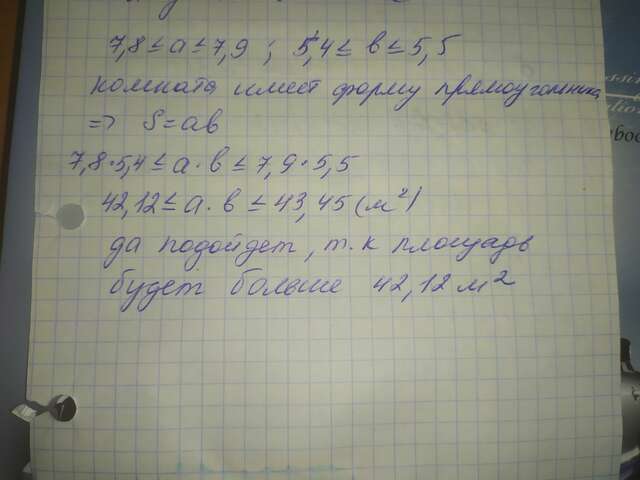 7,8 ≤ a ≤ 7,9 ; 5,4 ≤ в ≤ 5,5
комната имеет форму прямоугольника
=> S = aв
7,8·5,4 ≤ a·в ≤ 7,9·5,5
42,12 ≤ a·в ≤ 43,45 (м²)
да подойдет, т.к площадь
будет больше 42,12 м²